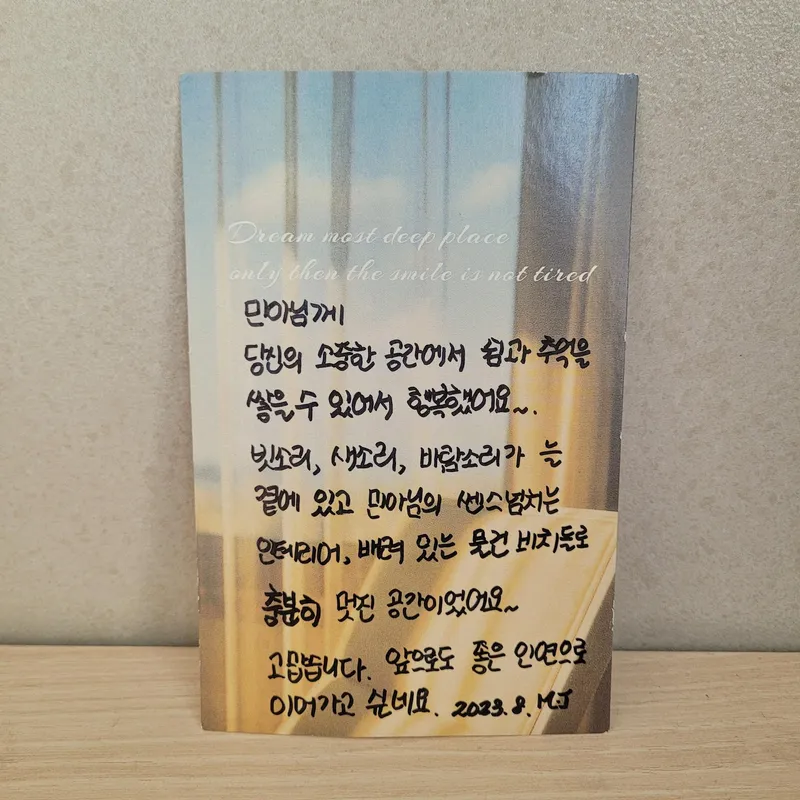 Dream most deep place
only then the smile is not tired
민아님께
당신의 소중한 공간에서 쉼과 추억을
쌓을 수 있어서 행복했어요~.
빗소리, 새소리, 바람소리가 늘
곁에 있고 민아님의 쎈스넘치는
인테리어, 배려 있는 물건 비치들로
충분히 멋진 공간이었어요~
고맙습니다. 앞으로도 좋은 인연으로
이어가고 싶네요. 2023.8. M.J